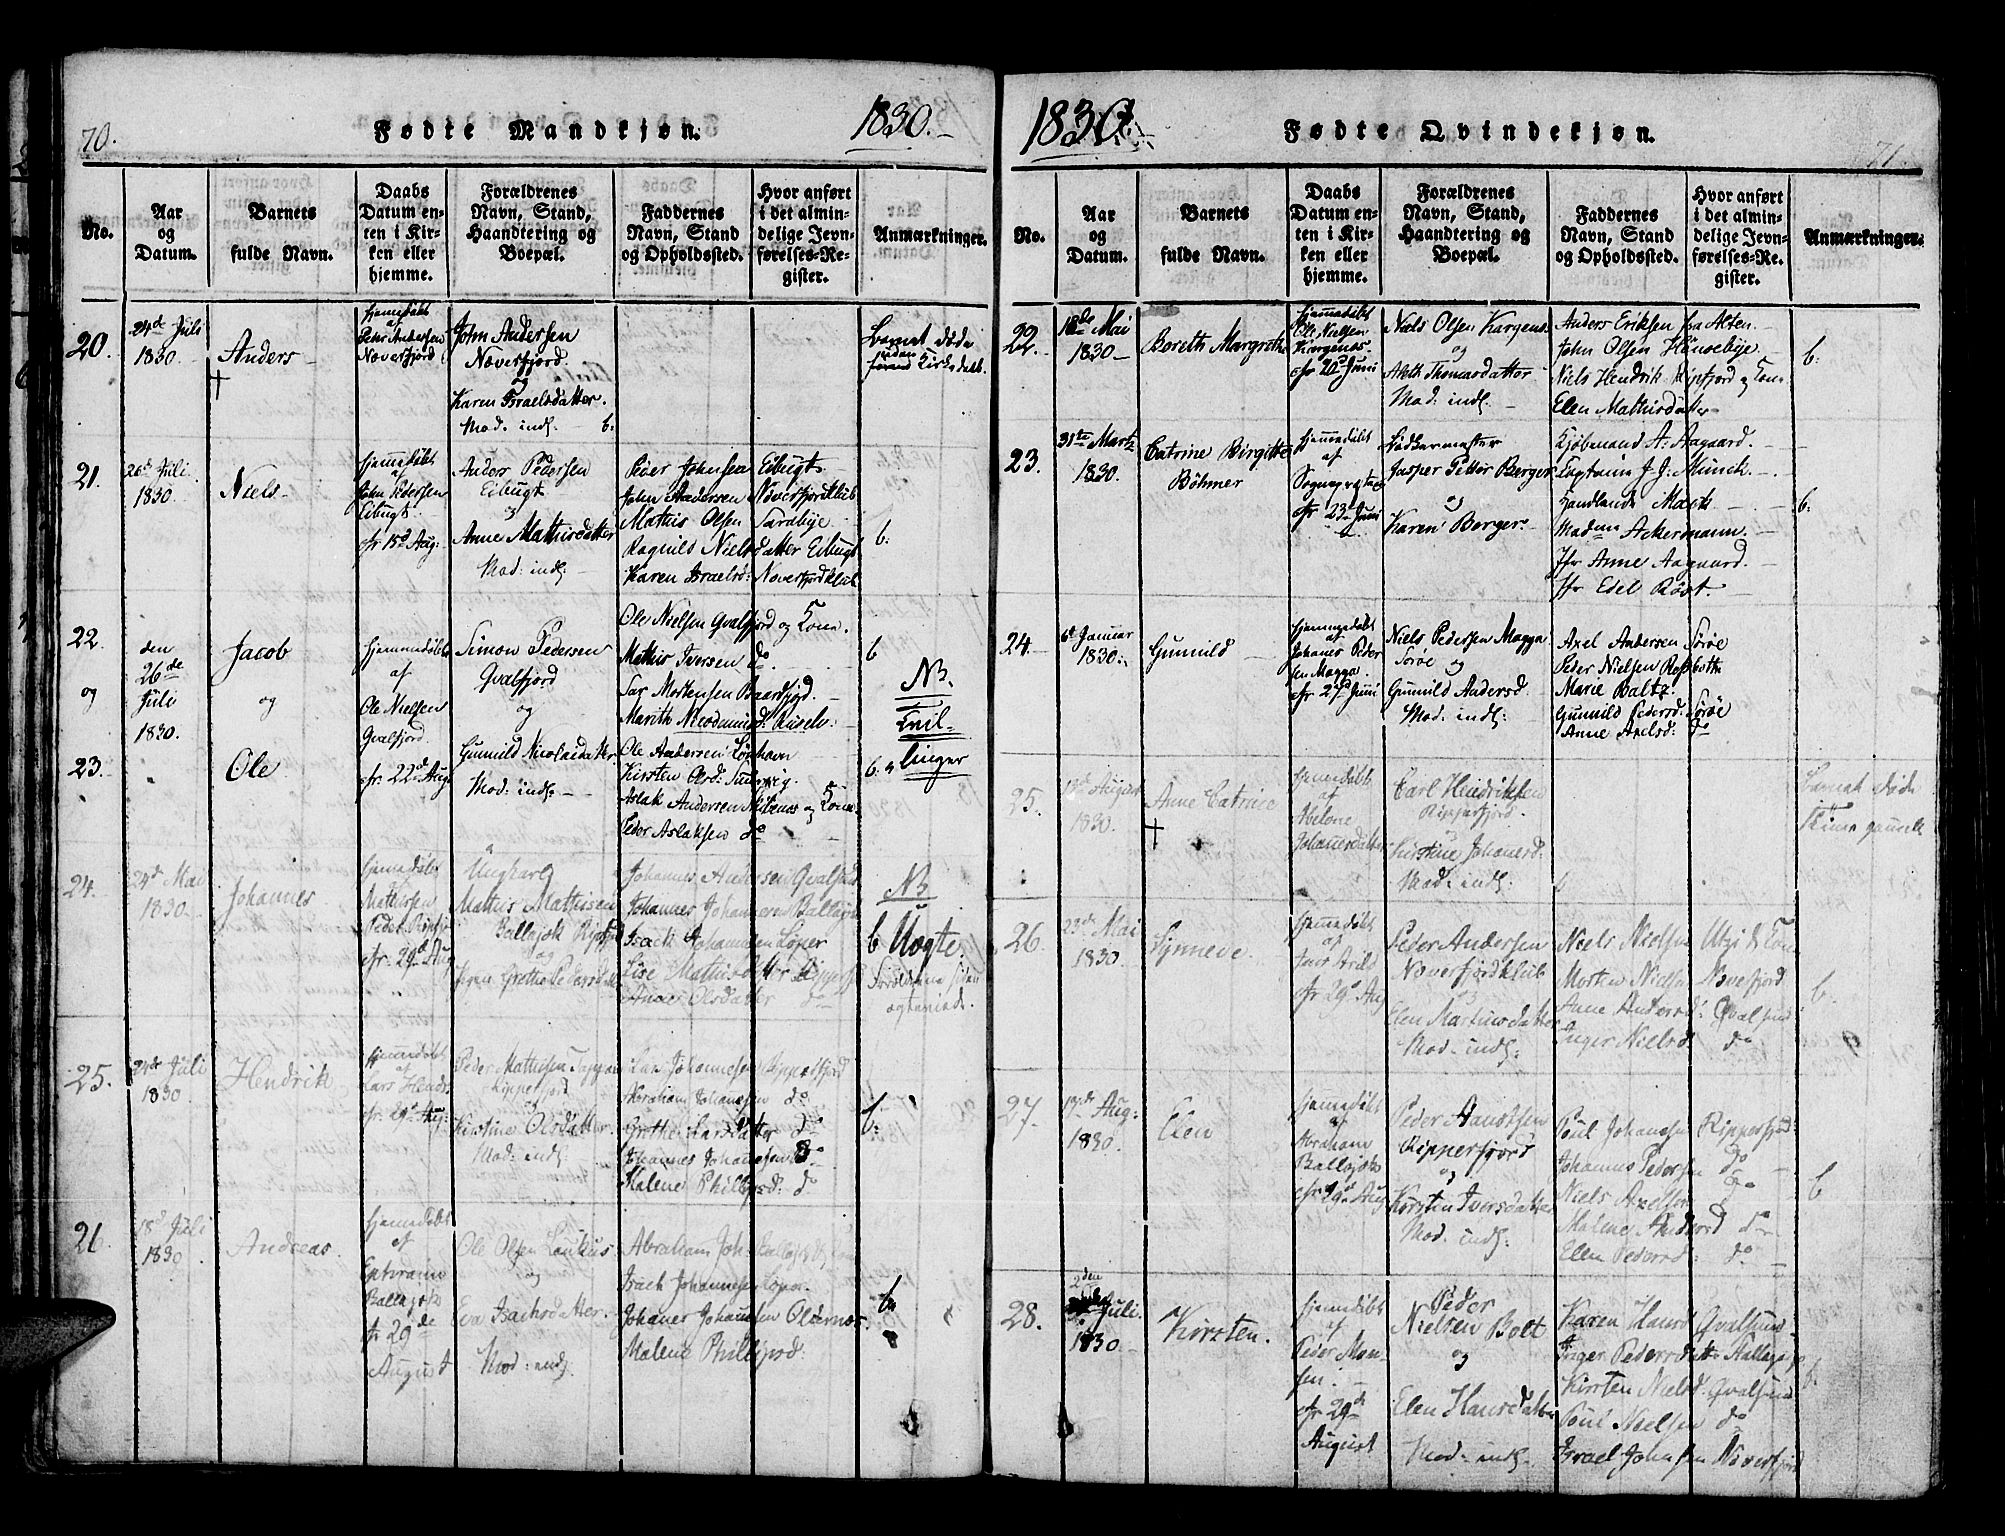 70.
Fødte Mandkjøn.
1830.
No.
Aar og Datum.
Barnets fulde Navn.
Daabs Datum enten i Kirken eller hjemme.
Forældrenes Navn, Stand, Haandtering og Boepæl.
Faddernes Navn, Stand og Opholdssted.
Hvor anført i det almindelige Jevnførelses-Register.
Anmærkninger.
20.
24de Juli
1830.
Anders
†
hjemmedøbt
af
Peter Andersen
Noverfjord
John Andersen
Noverfjord
og
Karen Israelsdatter.
Mod: indl: b:
Barnet døde
uden
Kirkedaab.
21.
26d Juli
1830.
Niels
hjemmedøbt
af
John Pedersen
Eibugt
cfr 15d Aug:
Anders Pedersen
Eibugt
og
Anne Mathisdatter
Mod: indl:
Peder Johnsen Eibugt
John Andersen Noverfjordklub
Mathis Olsen Sardbye
Ragnild Nielsdatter Eibugt
Karen Israelsd: Noverfjordklub
b:
22.
og
23.
den
26de
Juli
1830.
Jacob
og
Ole
hjemmedøbt
af
Ole Nielsen
Qvalfjord
cfr 22d Aug
Simon Pedersen
Qvalfjord
og
Gunnild Nicolaidatter.
Mod: indl:
Ole Nielsen Qvalfjord og Kone.
Mathis Iversen do
Lar Mortensen Baarfjord.
Marith
Ole Andersen Løphavn
Kirsten Olsd:
Aslak Andersen og Kone
Peder Aslaksen do
b
b:
NB.
Tvil-
linger
24.
24d Mai
1830.
Johannes
hjemmedøbt
Mathisen
Peder Ripfj
cfr. 29d Aug
Ungkarl
Mathis Mathisen
Ballojok Ripfjord
og
Grethe Pedersdatter
Johannes Andersen Qvalsund
Johannes Johannesen Ballojok
Isack Johannesen Løper
Lise Mathisdatter Ripperfj
Anne Olsdatter do
NB
b Uægte.
Forældrene siden
egteviede.
25.
24de Juli
1830
Hendrik
hjemmedøbt
af
Lars Hends
cfr 29d Aug:
Peder Mathisen
Ripperfjord
og
Kirstine Olsdatter.
Mod: indl:
Lars Johannesen Ripperfjord
Abraham Johannesen do
Grethe Larsdatter do
Johannes Johannesen do
Malene Phillipsd: do
b:
26.
18d Juli
1830
Andreas.
hjemmedøbt
af
Ephraim
Ballojok
cfr 29de
August
Ole Olsen Laukus
og
Eva Isachsdatter.
Mod: indl:
Abraham Joh:
Isach Johannesen Løper
Johanes Johannsen Oldernæs
Malene Phillipsd:
b
1830.
Fødte Qvindekjøn.
71.
No.
Aar og Datum.
Barnets fulde Navn.
Daabs Datum enten i Kirken eller hjemme.
Forældrenes Navn, Stand, Haandtering og Boepæl.
Faddernes Navn, Stand og Opholdssted.
Hvor anført i det almindelige Jevnførelses-Register.
Anmærkninger.
22.
18de Mai
1830
Boreth Margrethe
hjemmedøbt
Ole Nielsen
Kargenes
cfr 20d Juni
Niels Olsen Kargenes
og
Aleth Thomasdatter
Mod: indl:
Anders Eriksen fra Alten
John Olsen Hønsebye
Niels Hendrik Ripfjord og Kone
Elen Mathisdatter
b:
23.
31te Marts
1830.
Catrine Birgitte
Bøhmer
hjemmedøbt
af
Sognepræsten
cfr 23d Juni
Lodsermester
Jasper Petter Berger
og
Karen Berger
Kjøbmand A: Aagaard.
Captain J. J. Münck.
Handlende Mack
Madm Ackermann.
Jfr Anne Aagaard.
Jfr Edel Røst.
b:
24.
6d Januar
1830.
Gunnild
hjemmedøbt
af
Johanes Peder
sen Magga.
cfr 27d Juni
Niels Pedersen Magga
Sørøe
og
Gunnild Andersd.
Mod: indl:
Axel Andersen Sørøe
Peder Nielsen Rossboth
Marie Baltz
Gunnild Pedersd: Sørøe
Anne Axelsd: do
25.
August
1830.
Anne Catrine
†
hjemmedøbt
af
Abelone
Johanesdatter
Carl Hendriksen
Ripperfjord
og
Kirstine Johanesd:
Mod: indl:
Barnet døde
26.
23de Mai
1830.
Synneve
hjemmedøbt
af
cfr 29d Aug
Peder Andersen
Noverfjordklub
og
Elen Martinusdatter
Mod: indl:
Niels Nielsen Utzi & Kone
Morten Nielsen Noverfjord
Anne Andersd: Qvalsund
Inger Nielsd do
b.
27.
17de Aug:
1830.
Elen
hjemmedøbt
af
Abraham
Ballojok
cfr 29d Aug
Peder Aanetsen
Ripperfjord
og
Kirsten Iversdatter
Mod: indl:
Poul Johansen Ripperfjord
Johannes Pedersen do
Niels Axelsen do
Malene Andersd do
Elen Pedersd: do
b
28.
2den
Juli.
1830.
Kirsten.
hjemmedøbt
af
Peder Mon-
sen.
cfr 29d
August
Peder
Nielsen Bolt
og
Elen Hansdatter
Mod: indl:
Karen Hansd Qvalsund
Inger Pedersdatter
Kirsten Nielsd: Qvalsund
Poul Nielsen do
Israel Johnsen Noverfjord
b: